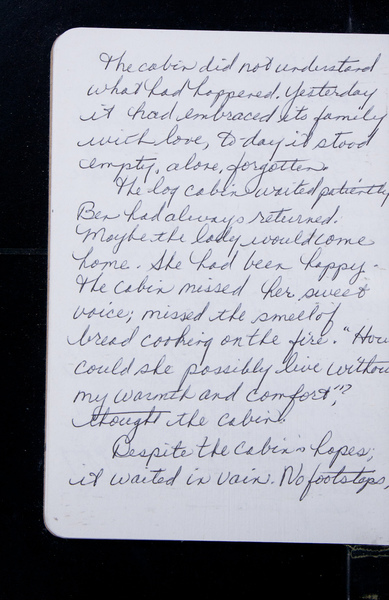 The cabin did not understand
what had happened. Yesterday
it had embraced its family
with love, to-day it stood
empty, alone, forgotten.
The log cabin waited patiently
Ben had always returned.
Maybe the lady would come
home. She had been happy.
The cabin missed her sweet
voice; missed the smell of
bread cooking on the fire. "How
could she possibly live without
my warmth and comfort"?
thought the cabin.
Despite the cabin's hopes,
it waited in vain. No footsteps,